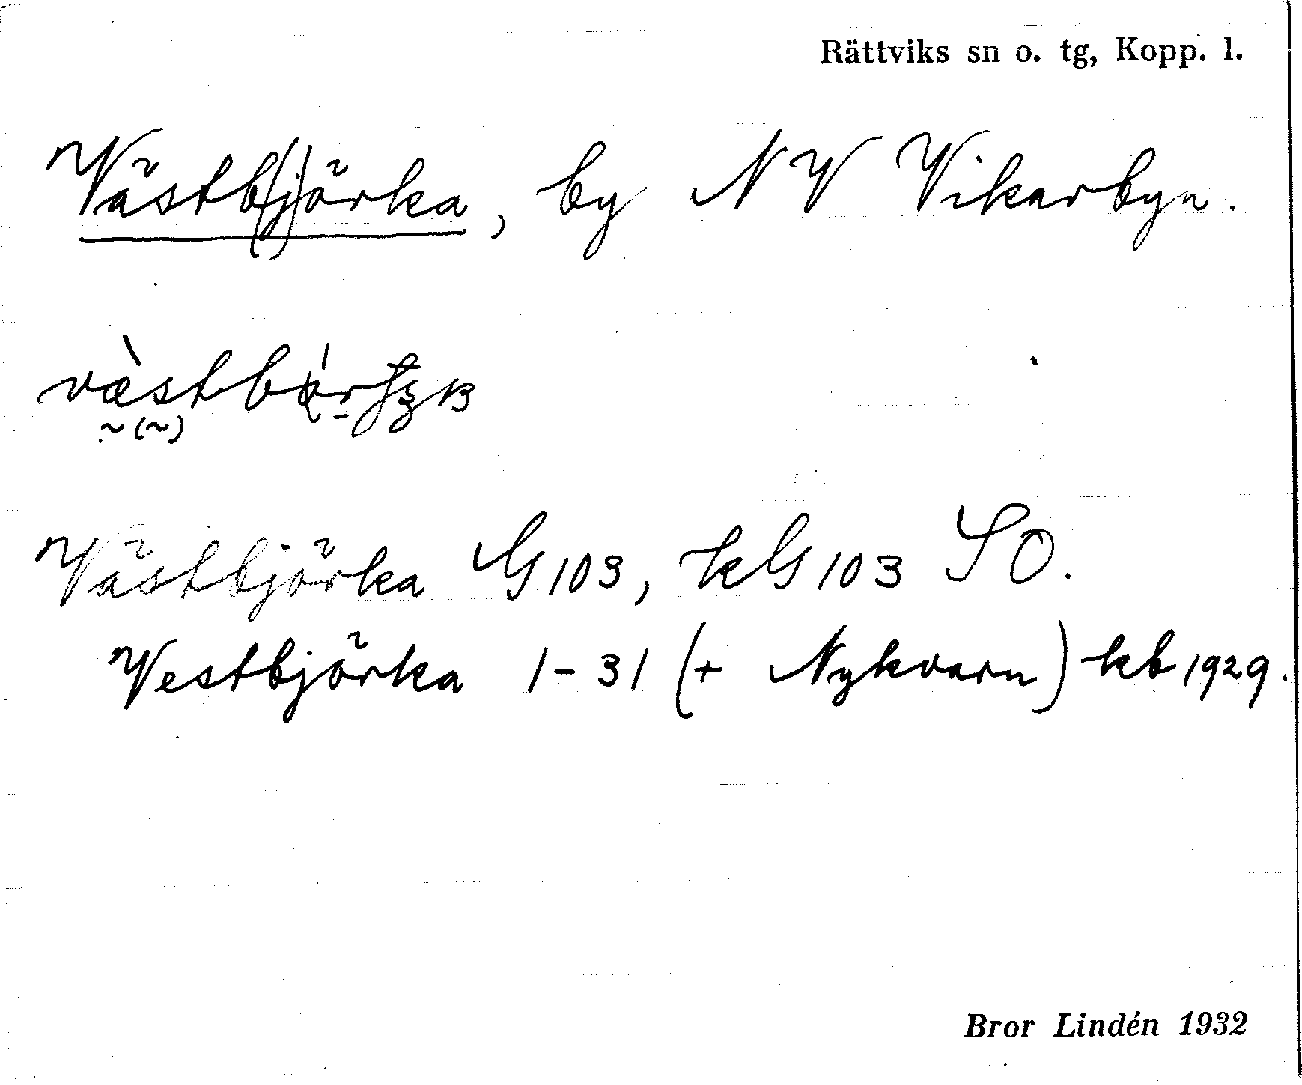 Rättviks sn o. tg, Kopp. l.
Västb(j)örka, by NV Vikarbyn.
Västbjörka G103, kG103 SO.
Vestbjörka 1-31 (+ Nykvarn) kb 1929.
Bror Lindén 1932